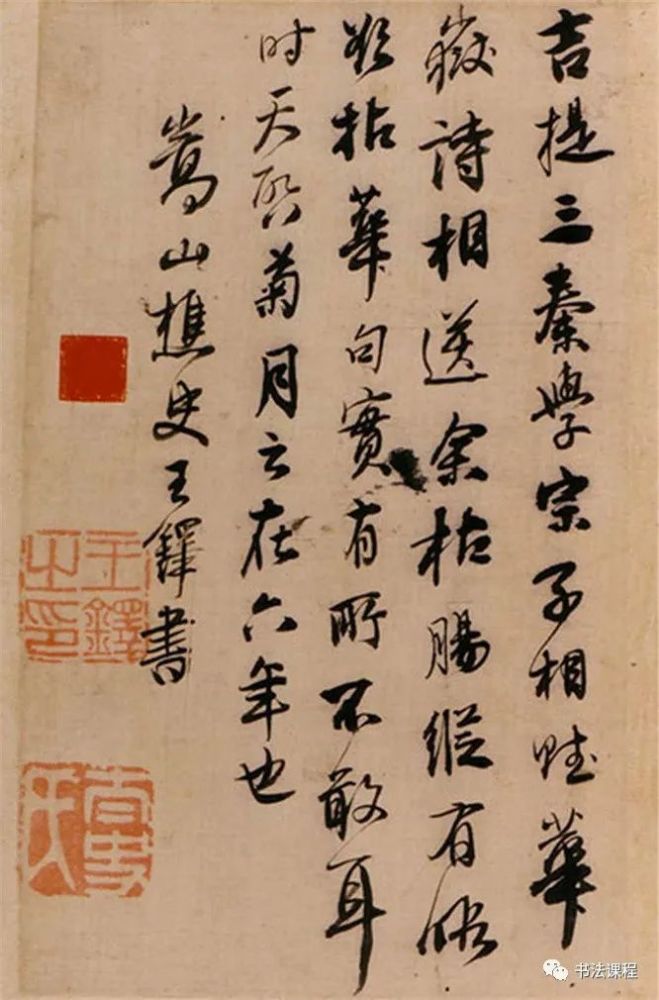 吉提三秦學宗子相賦華
嶽詩相送余枯腸縱有
拈華句實有所不敢耳
时天啓菊月云在六年也
嵩山樵史王鐸書
王鐸之印
书法课程